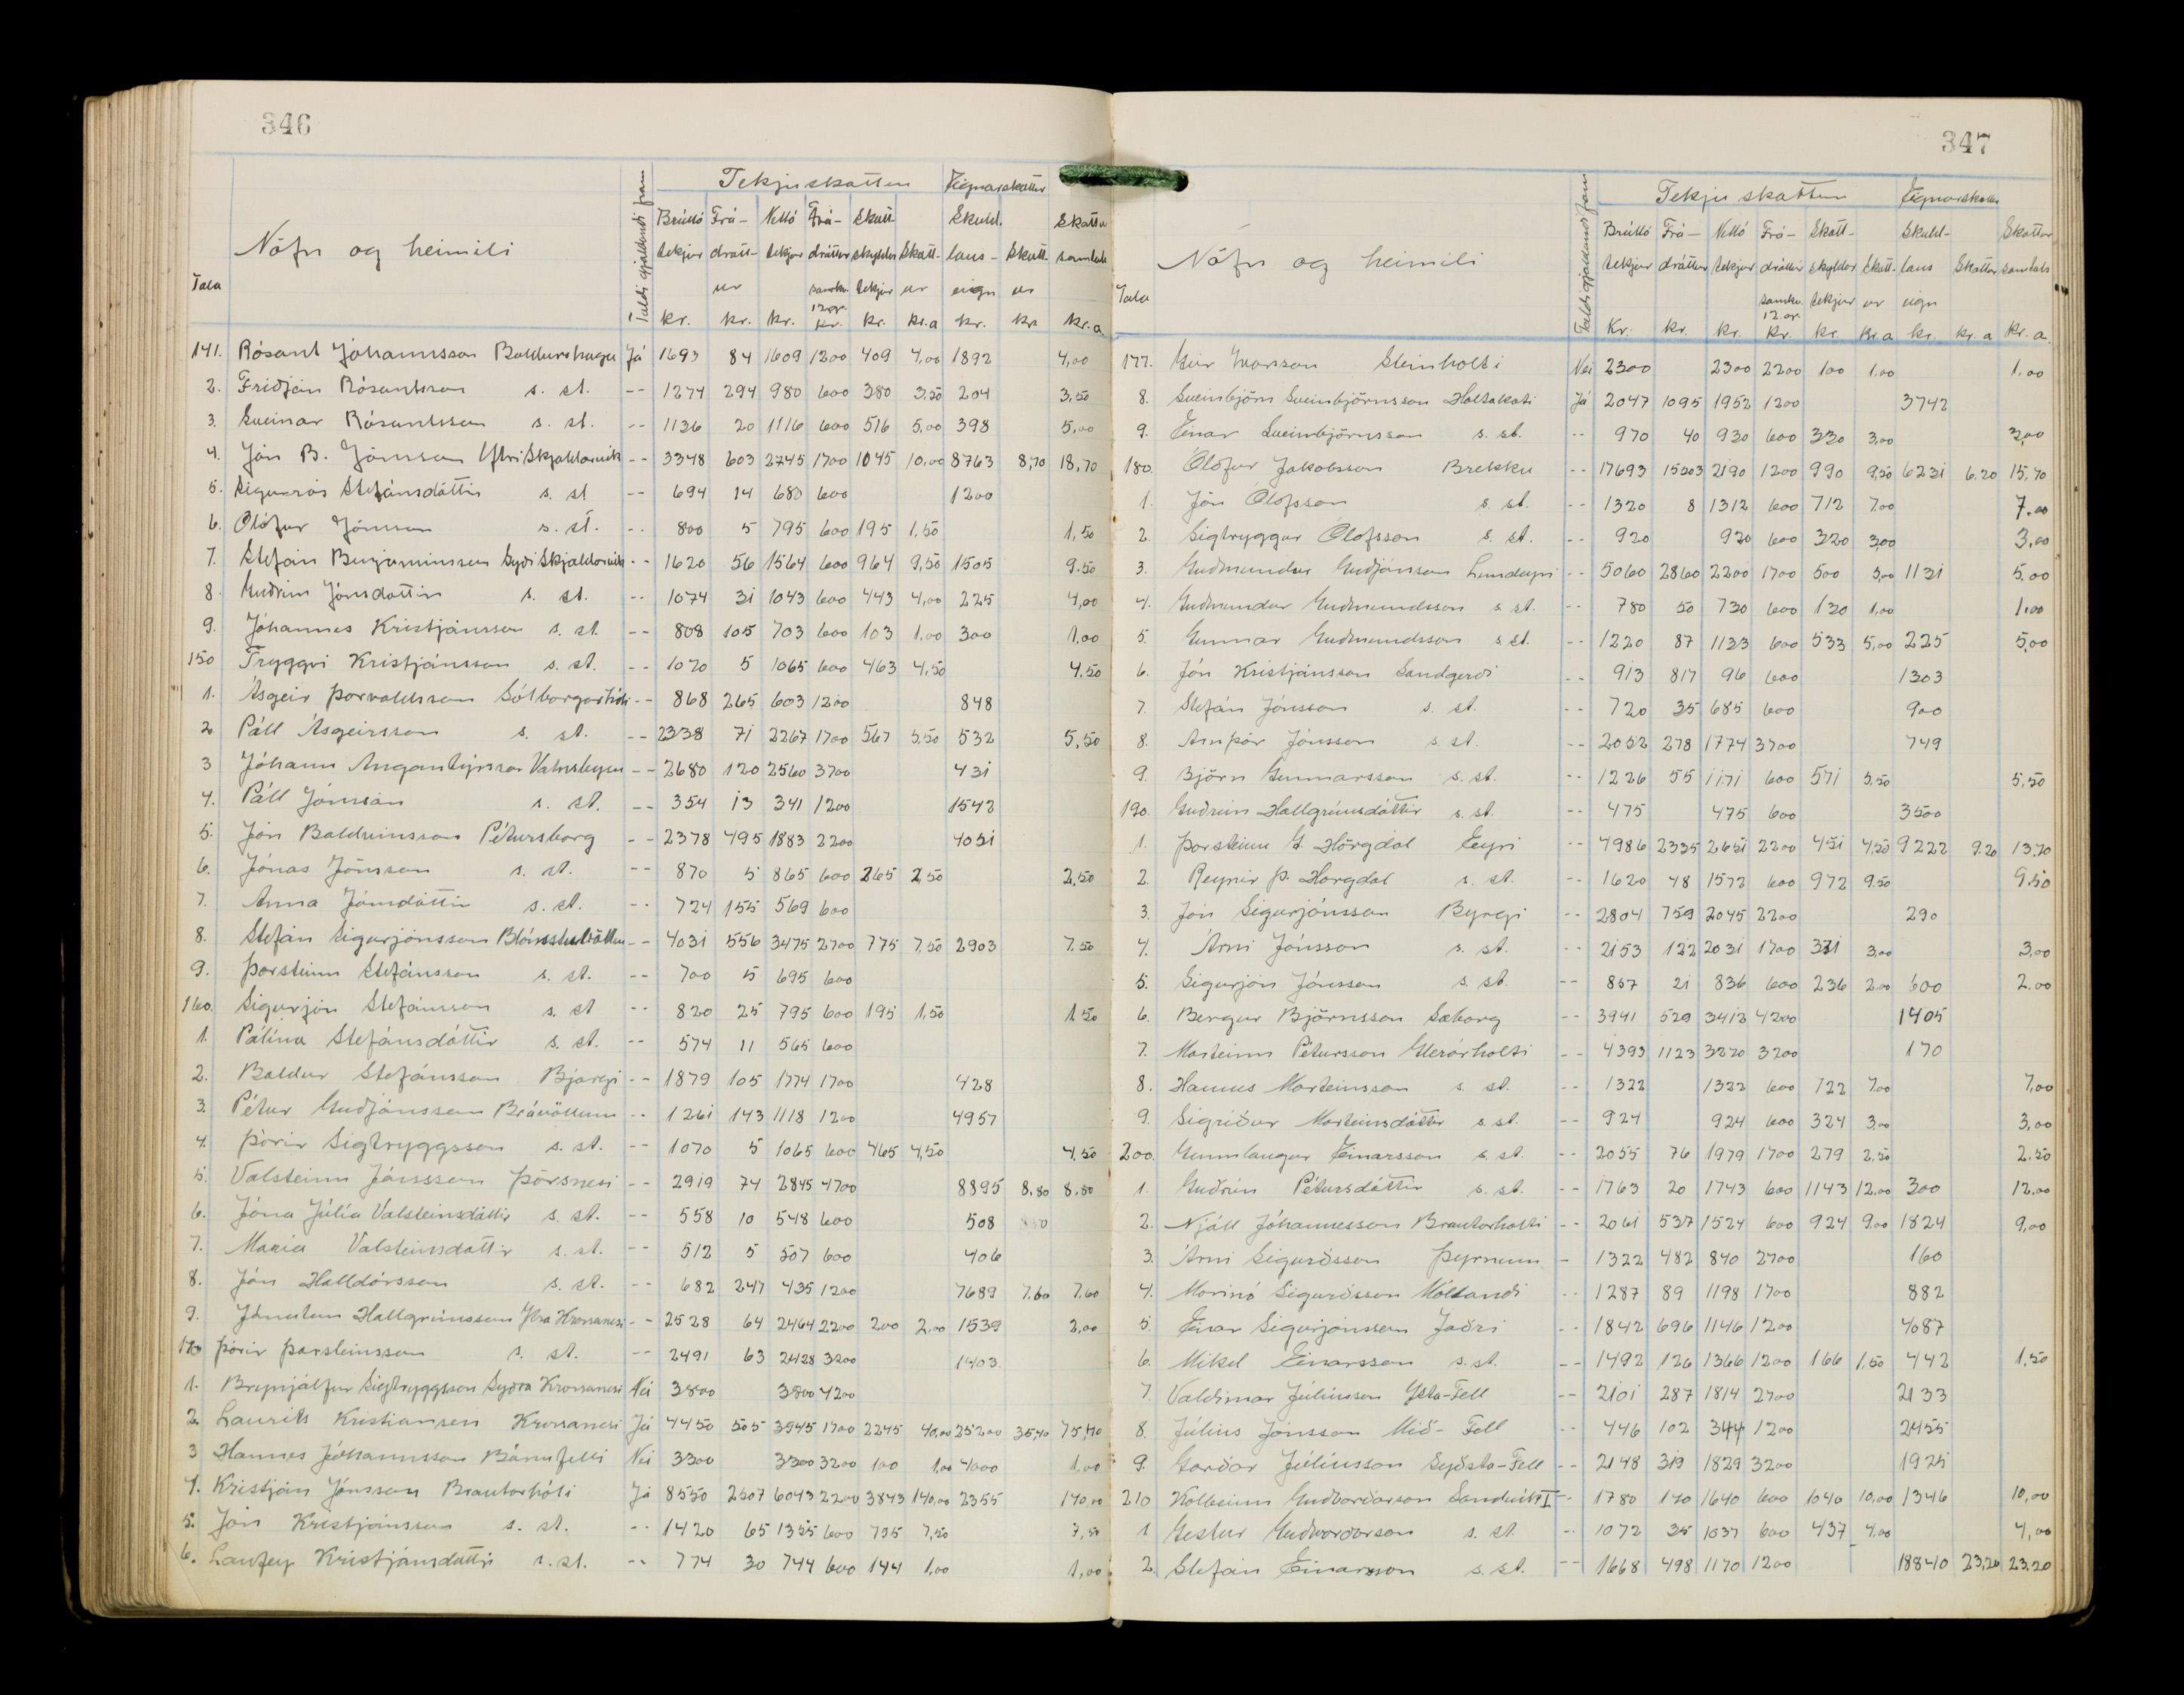 346
Tala Nöfn og heimili Taldi gjaldandi fram Tekjuskattur Eignarskattur
Brúttó tekjur kr. Frádráttur kr. Nettó tekjur kr. Frádráttur samkv. 12. gr. kr. Skattskyldar tekjur kr. Skattur kr. a Skuldlaus eign kr. Skattur kr Skattur samtals kr. a
141. Rósant Jóhannsson Baldurshaga Já 1693 84 1609 1200 409 4,00 1892 4,00
2. Friðjón Rósantsson s. st. -- 1274 294 980 600 380 3,50 204 3,50
3. Sveinar Rósantsson s. st. -- 1136 20 1116 600 516 5,00 398 5,00
4. Jón B. Jónsson Ytri Skjaldarvík -- 3348 603 2745 1700 1045 10,00 8763 8,70 18,70
5. Sigurrós Stefánsdóttir s. st -- 694 14 680 600 1200
6. Ólöfur Jónsson s. st. -- 800 5 795 600 195 1,50 1,50
7. Stefán Benjamínsson Syðri Skjaldarvík -- 1620 56 1564 600 964 9,50 1505 9,50
8. Guðrún Jónsdóttir s. st. -- 1074 31 1043 600 443 4,00 225 4,00
9. Jóhannes Kristjánsson s. st. -- 808 105 703 600 103 1,00 300 1,00
150 Tryggvi Kristjánsson s. st. -- 1070 5 1065 600 463 4,50 4,50
1. Ásgeir Þorvaldsson Sólborgarhóli -- 868 265 603 1200 848
2. Páll Ásgeirsson s. st. -- 2338 71 2267 1700 567 5,50 532 5,50
3 Jóhann Angantýrsson -- 2680 120 2560 3700 431
4. Páll Jónsson s. st. -- 354 13 341 1200 1542
5. Jón Baldvinsson Pétursborg -- 2378 495 1883 2200 4051
6. Jónas Jónsson s. st. -- 870 5 865 600 265 2,50 2,50
7. Anna Jónsdóttir s. st. -- 724 155 569 600
8. Stefán Sigurjónsson -- 4031 556 3475 2700 775 7,50 2903 7.50
9. Þorsteinn Stefánsson s. st. -- 700 5 695 600
160. Sigurjón Stefánsson s. st -- 820 25 795 600 195 1,50 1,50
1. Pálína Stefánsdóttir s. st. -- 574 11 565 600
2. Baldur Stefánsson Bjargi -- 1879 105 1774 1700 428
3. Pétur Guðjónsson Brávöllum -- 1261 143 1118 1200 4957
4. Þórir Sigtryggsson s. st. -- 1070 5 1065 600 465 4,50 4,50
5. Valsteinn Jónsson Þórsnesi -- 2919 74 2845 4700 8895 8.80 8.80
6. Jóna Júlía Valsteinsdóttir s. st. -- 558 10 548 600 508
7. María Valsteinsdóttir s. st. -- 512 5 507 600 406
8. Jón Halldórsson s. st. -- 682 247 435 1200 7689 7.60 7.60
9. Jónatan Hallgrímsson Ytra Krossanesi -- 2528 64 2464 2200 200 2,00 1539 2,00
170 Þórir Þorsteinsson s. st. -- 2491 63 2428 3200 1403
1. Brynjólfur Sigtryggsson Syðra Krossanesi Nei 3800 3800 4200
2. Laurits Kristiansen Krossanesi Já 4450 505 3945 1700 2245 40,00 25200 35,40 75,40
3 Hannes Jóhannsson Bárufelli Nei 3300 3300 3200 100 1,00 4000 1,00
4. Kristján Jónsson Brautarhóli Já 8550 2507 6043 2200 3843 140,00 2355 140,00
5. Jón Kristjánsson s. st. -- 1420 65 1355 600 755 7,50 7,50
6. Laufey Kristjánsdóttir s. st. -- 774 30 744 600 144 1,00 1,00
347
Tala Nöfn og heimili Taldi gjaldandi fram Tekjuskattur Eignarskattur
Brúttó tekjur Kr. Frádráttur kr. Nettó tekjur kr. Frádráttur samkv. 12. gr. kr. Skattskyldar tekjur kr. Skattur kr. a Skuldlaus eign kr. Skattur kr. a Skattur samtals kr. a.
177. Geir Ivarsson Steinholti Nei 2300 2300 2200 100 1.00 1.00
8. Sveinbjörn Sveinbjörnsson Holtakoti Já 2047 1095 1952 1200 3742
9. Einar Sveinbjörnsson s. st. -- 970 40 930 600 330 3,00 3,00
180. Ólöfur Jakobsson Brekku -- 17693 15503 2190 1200 990 9,50 6231 6.20 15,70
1. Jón Ólofsson s. st. -- 1320 8 1312 600 712 7.00 7.00
2. Sigtryggur Ólofsson s. st. -- 920 920 600 320 3,00 3,00
3. Guðmundur Guðjónsson Lundeyri -- 5060 2860 2200 1700 500 5,00 1131 5,00
4. Guðmundur Guðmundsson s st. -- 780 50 730 600 130 1.00 1.00
5. Gunnar Guðmundsson s st. -- 1220 87 1133 600 533 5,00 225 5,00
6. Jón Kristjánsson Sandgerði -- 913 817 96 600 1303
7. Stefán Jónsson s. st. -- 720 35 685 600 900
8. Arnþór Jónsson s. st. -- 2052 278 1774 3700 749
9. Björn Gunnarsson s. st. -- 1226 55 1171 600 571 5,50 5,50
190. Guðrún Hallgrímsdóttir s. st. -- 475 475 600 3500
1. Þorsteinn G. Hörgdal Eyri -- 4986 2335 2651 2200 451 4,50 9222 9.20 13,70
2. Reynir Þ. Hörgdal s. st. -- 1620 48 1572 600 972 9.50 9.50
3. Jón Sigurjónsson Byrgi -- 2804 759 2045 2200 290
4. Árni Jónsson s. st. -- 2153 122 2031 1700 331 3,00 3,00
5. Sigurjón Jónsson s. st. -- 857 21 836 600 236 2.00 600 2.00
6. Bergur Björnsson Sæborg -- 3941 529 3412 4200 1405
7. Marteinn Pétursson Glerárholti -- 4393 1123 3270 3200 170
8. Hannes Marteinsson s. st. -- 1322 1322 600 722 7.00 7,00
9. Sigríður Marteinsdóttir s. st. -- 924 924 600 324 3,00 3,00
200. Gunnlaugur Einarsson s. st. -- 2055 76 1979 1700 279 2,50 2.50
1. Guðrún Pétursdóttir s. st. -- 1763 20 1743 600 1143 12,00 300 12,00
2. Njáll Jóhannesson Brautarholti -- 2061 537 1524 600 924 9.00 1824 9,00
3. Árni Sigurðsson Þyrnum - 1322 482 840 2700 160
4. Marinó Sigurðsson Mólandi -- 1287 89 1198 1700 882
5. Einar Sigurjónsson Jaðri -- 1842 696 1146 1200 4087
6. Mikel Einarsson s. st. -- 1492 126 1366 1200 166 1,50 442 1,50
7. Valdimar Júlíusson Ysta-Fell -- 2101 287 1814 2700 2133
8. Júlíus Jónsson Mið-Fell -- 446 102 344 1200 2455
9. Garðar Júlíusson Syðsta-Fell -- 2148 319 1829 3200 1925
210 Kolbeinn Guðvarðarson Sandvík I -- 1780 140 1640 600 1040 10,00 1346 10,00
1 Gestur Guðvarðarson s. st. -- 1072 35 1037 600 437 4.00 4,00
2. Stefán Einarsson s. st. -- 1668 498 1170 1200 18840 23,20 23.20